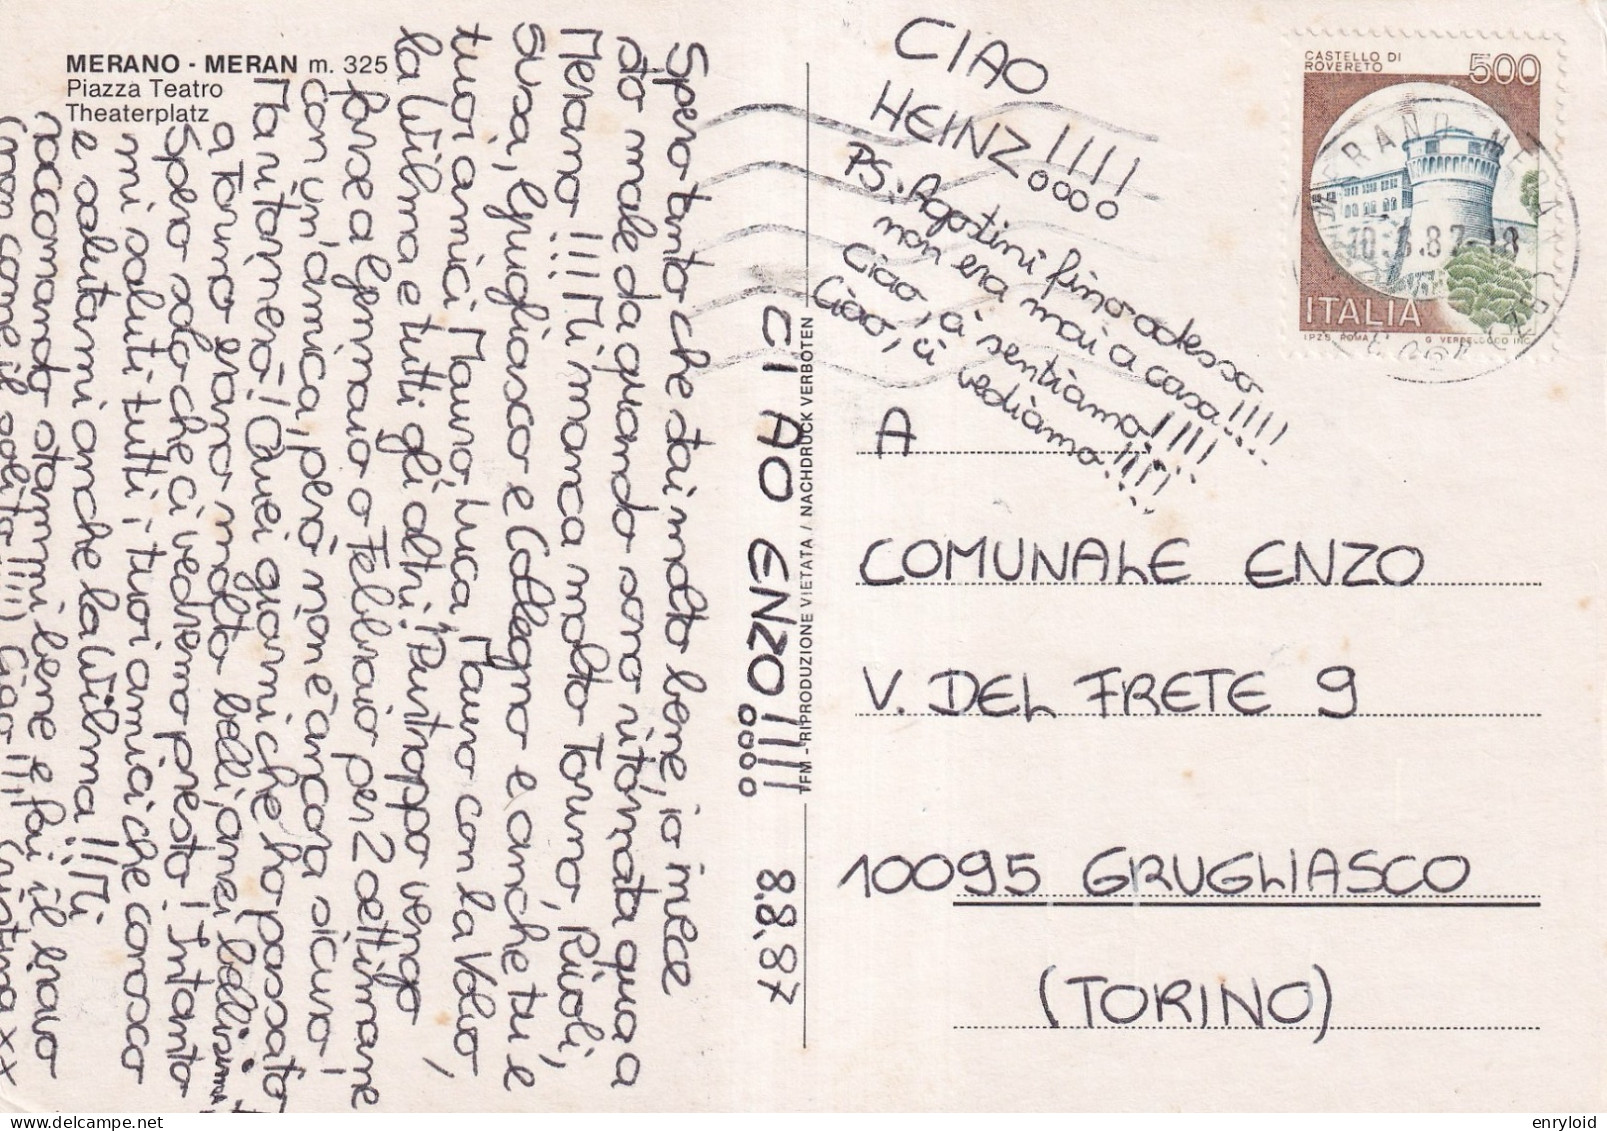 MERANO - MERAN m. 325
Piazza Teatro
Theaterplatz
CIAO ENZO!!!!! 8.8.87
Spero tanto che stai molto bene, io invece
sto male da quando sono ritornata qua a
Merano!!! Mi manca molto Torino, Rivoli,
Susa, Grugliasco e Collegno e anche tu e
tuoi amici Mauro, Luca, Mauro con la Volvo,
la Wilma e tutti gli altri! Purtroppo vengo
forse a Gennaio o Febbraio per 2 settimane
con un'amica, però non è ancora sicuro!
Ma ritornerò! Quei giorni che ho passato
a Torino erano molto belli, anzi bellissimi
Spero solo che ci vedremo presto! Intanto
mi saluti tutti i tuoi amici che conosco
e salutami anche la Wilma!!! Mi
raccomando stammi bene e fai il bravo
(non come il solito!!!!) Ciao!!!, Cristina xx
CIAO
HEINZ!!!!
PS. Agostini fino adesso
non era mai a casa!!!!
Ciao, ci sentiamo!!!!
Ciao, ci vediamo!!!!
TFM - RIPRODUZIONE VIETATA / NACHDRUCK VERBOTEN
CASTELLO DI
ROVERETO
500
ITALIA
I.P.Z.S. ROMA G. VERDELOCCO INC.
MERANO MERAN
A
COMUNALE ENZO
V. DEL FRETE 9
10095 GRUGLIASCO
(TORINO)
enryloid